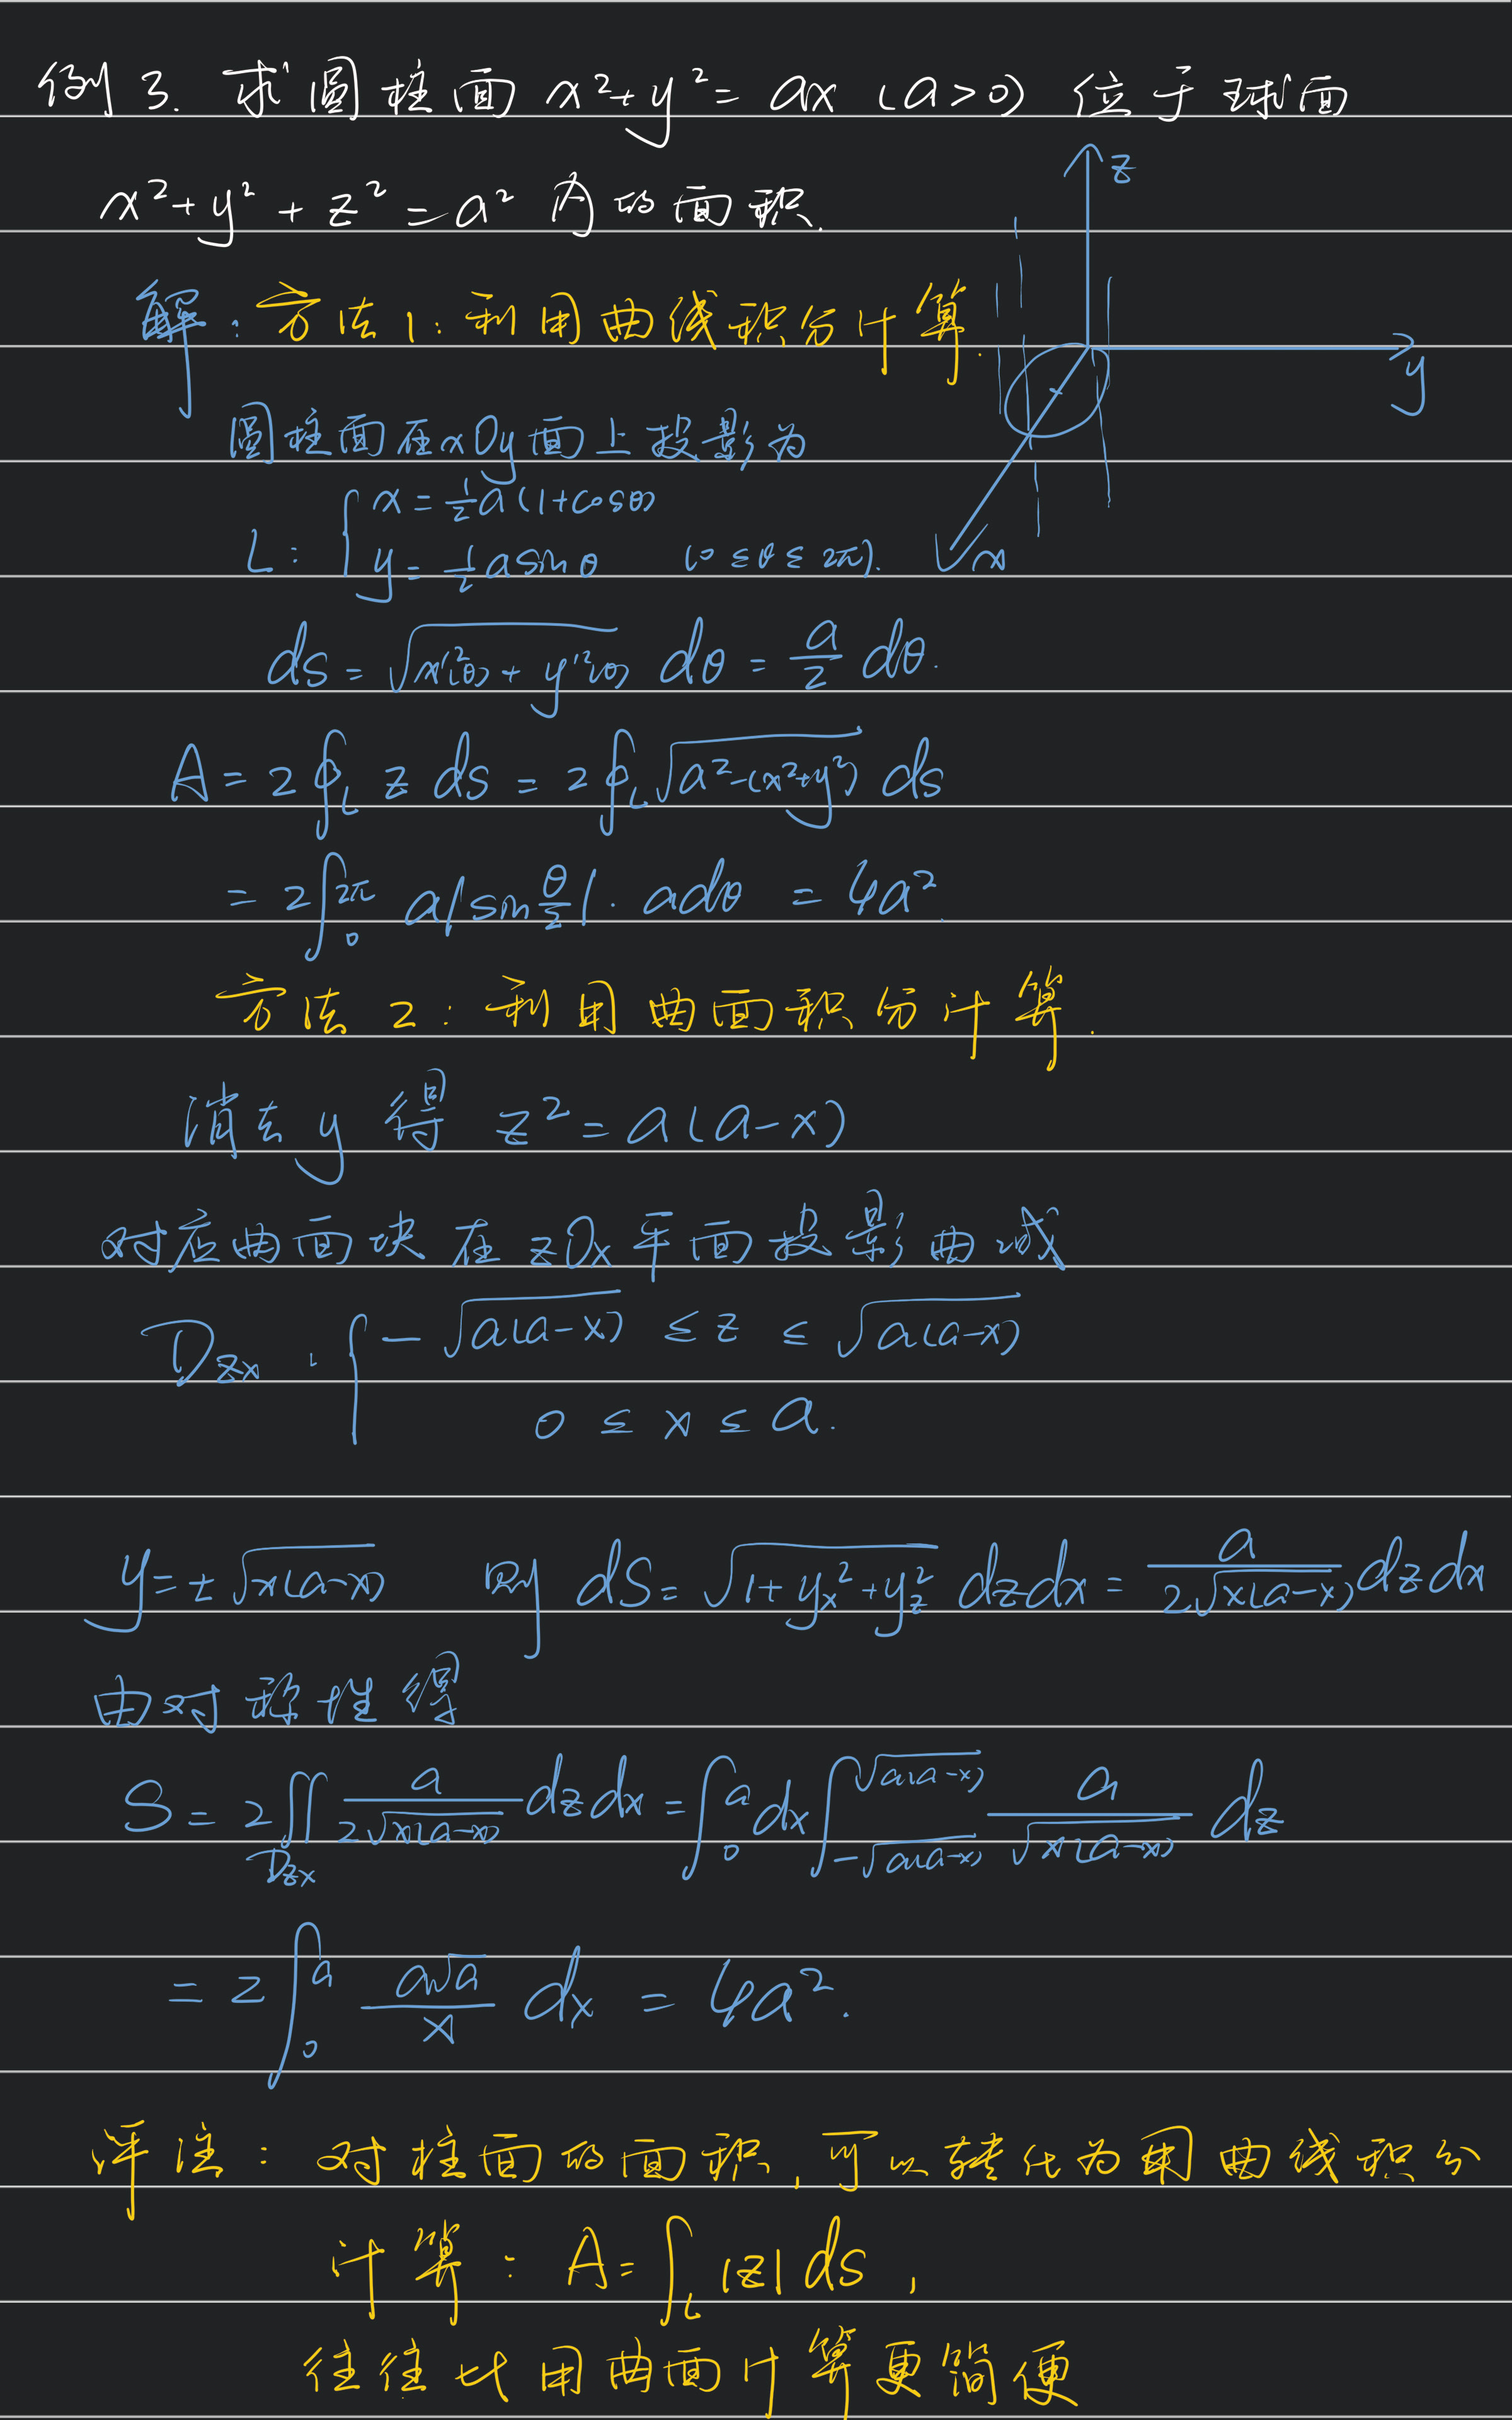 例3. 求圆柱面 x²+y²=ax (a>0) 位于球面
x²+y²+z²=a² 内的面积.
z
y
x
解：方法1：利用曲线积分计算.
圆柱面在xOy面上投影为
L: { x = ½a(1+cosθ)
y = ½a sinθ (0≤θ≤2π).
ds = √(x'²(θ)+y'²(θ)) dθ = a/2 dθ.
A = 2∮_L z ds = 2∮_L √(a²-(x²+y²)) ds
= 2∫₀^{2π} a|sin θ/2|·adθ = 4a².
方法2：利用曲面积分计算.
消去y得 z²=a(a-x)
对应曲面块在zOx平面投影曲域
D_zx: { -√(a(a-x)) ≤ z ≤ √(a(a-x))
0 ≤ x ≤ a.
y=±√(x(a-x)) 则 dS=√(1+y_x²+y_z²) dzdx = a/(2√(x(a-x))) dzdx
由对称性得
S = 2∬_{D_zx} a/(2√(x(a-x))) dzdx = ∫₀^a dx ∫_{-√(a(a-x))}^{√(a(a-x))} a/√(x(a-x)) dz
= 2∫₀^a a√a/x dx = 4a².
评注：对柱面的面积,可以转化为用曲线积分
计算：A=∫_L |z| ds,
往往比用曲面计算更简便